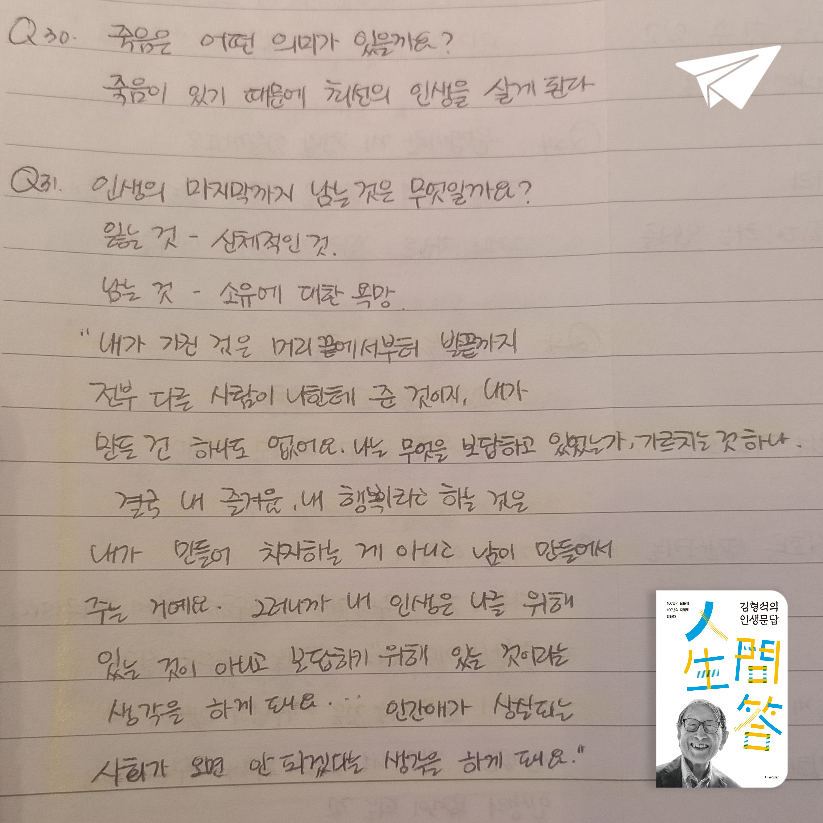 Q30. 죽음은 어떤 의미가 있을까요?
죽음이 있기 때문에 최선의 인생을 살게 된다
Q31. 인생의 마지막까지 남는 것은 무엇일까요?
잃는 것 - 신체적인 것.
남는 것 - 소유에 대한 욕망.
"내가 가진 것은 머리끝에서부터 발끝까지
전부 다른 사람이 나한테 준 것이지, 내가
만든 건 하나도 없어요. 나는 무엇을 보답하고 있었는가, 가르치는 것 하나.
결국 내 즐거움, 내 행복이라고 하는 것은
내가 만들어 차지하는 게 아니고 남이 만들어서
주는 거예요. 그러니까 내 인생은 나를 위해
있는 것이 아니고 보답하기 위해 있는 것이라는
생각을 하게 돼요... 인간애가 상실되는
사회가 오면 안 되겠다는 생각을 하게 돼요."
김형석의
인생문답
人生問答